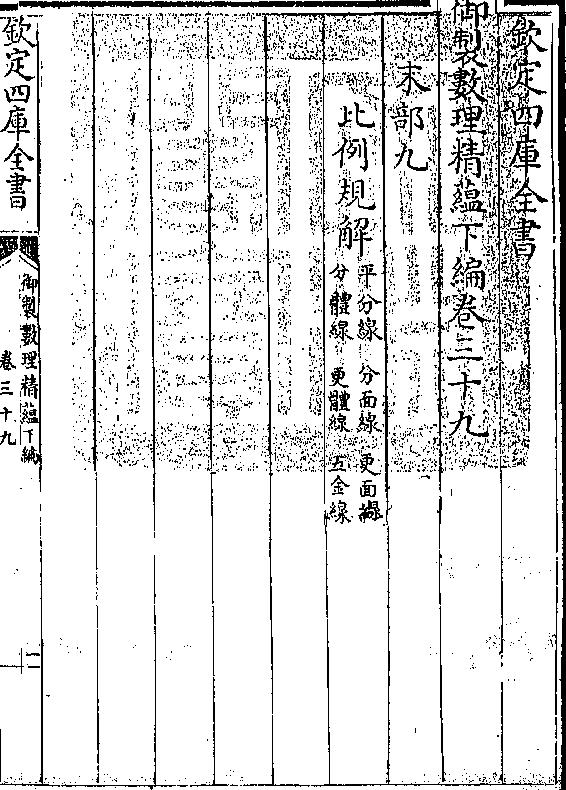 欽定四庫全書
御製數理精蘊下編卷三十九
末部九
比例規解
平分線 分面線 更面線
分體線 更體線 五金線
欽定四庫全書
御製數理精蘊下編
卷三十九
一